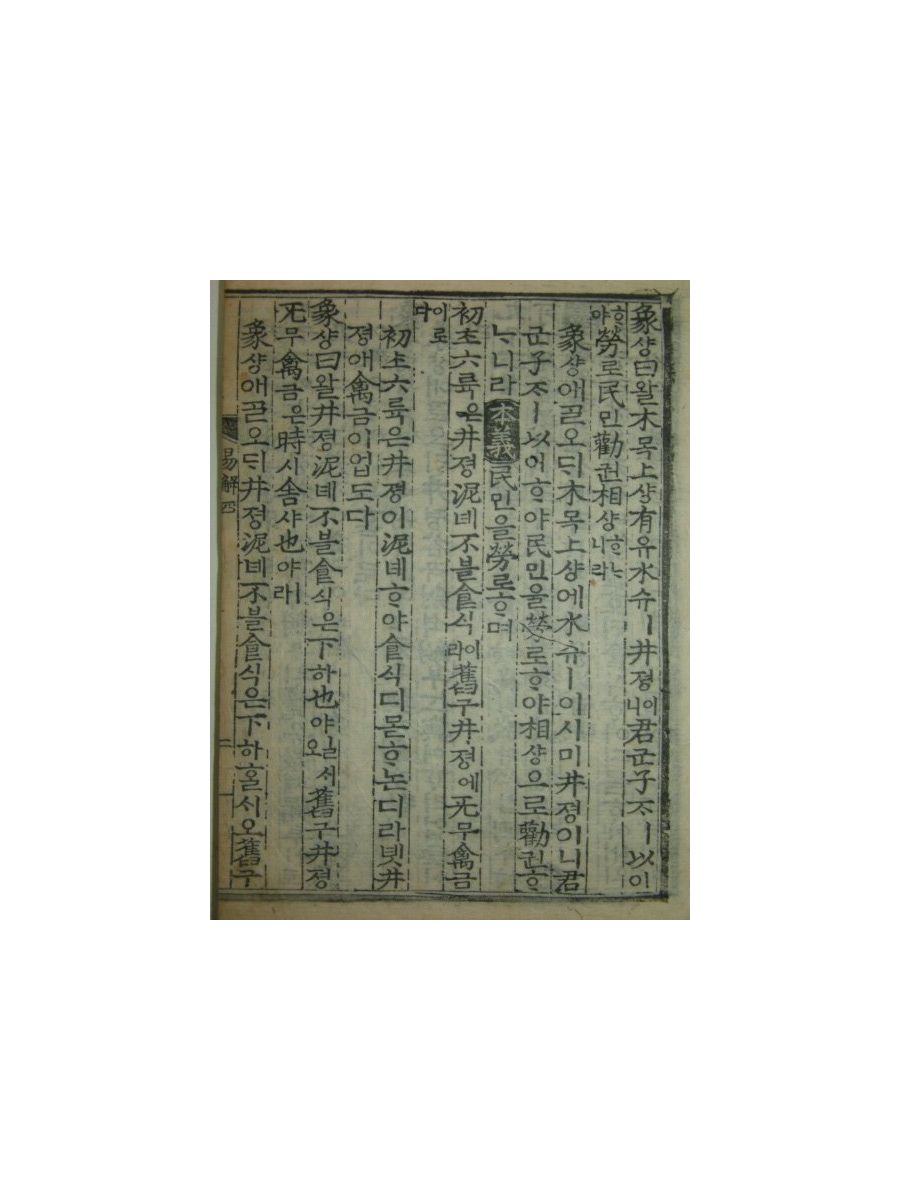 象샹曰왈木목上샹有유水슈ㅣ井졍이니君군子ᄌㅣ以이
ᄒᆞ야勞로民민勸권相샹ᄒᆞᄂᆞ니라
象샹애ᄀᆞᆯ오ᄃᆡ木목上샹에水슈ㅣ이시미井졍이니君
군子ᄌㅣ以이ᄒᆞ야民민을勞로ᄒᆞ야相샹으로勸권ᄒᆞ
ᄂᆞ니라本義民민을勞로ᄒᆞ며
初초六륙은井졍泥녜不블食식이라舊구井졍에无무禽금
이로다
初초六륙은井졍이泥녜ᄒᆞ야食식디몯ᄒᆞ논디라녯井
졍애禽금이업도다
象샹曰왈井졍泥녜不블食식은下하也야ᅟᅵᆯᄉᆡ오舊구井졍
无무禽금은時시舍샤也야ㅣ라
象샹애ᄀᆞᆯ오ᄃᆡ井졍泥녜不블食식은下하ᄒᆞᆯ시오舊구
易解四